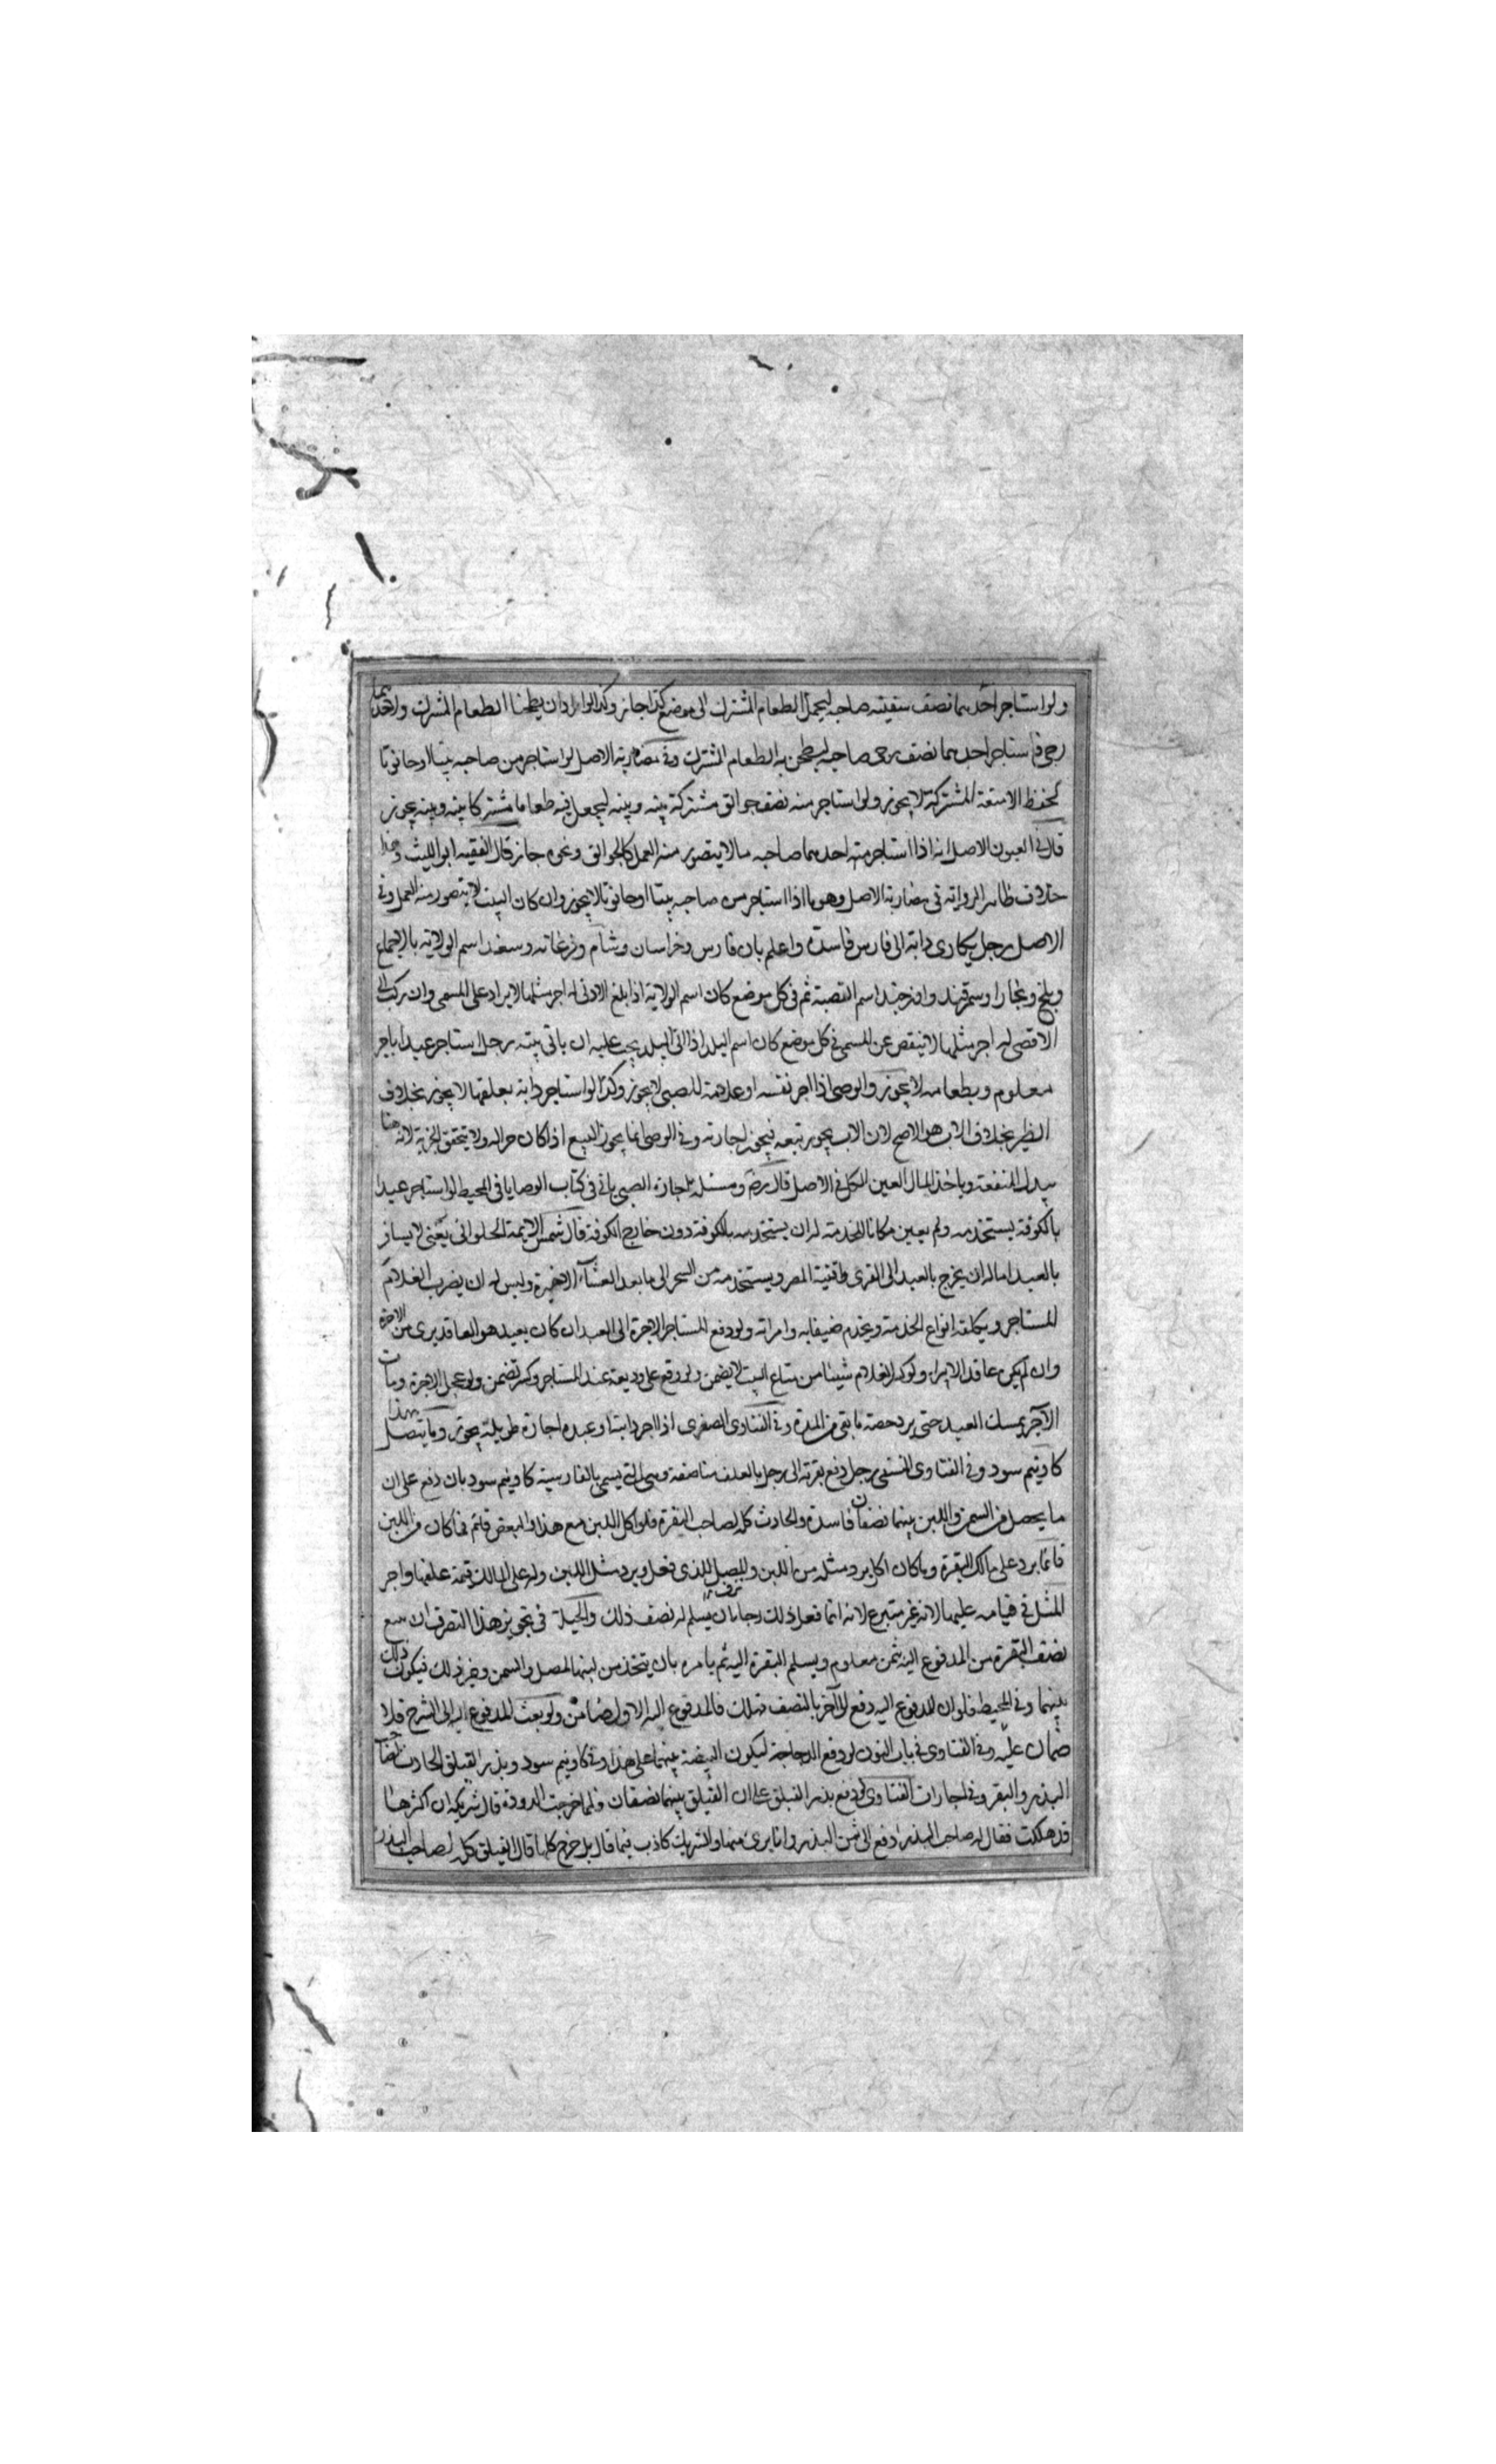 ولو استاجر احدهما نصف سفينته صاحبه ليحمل الطعام المشترك الى موضع كذا جاز وكذا لو ارادان يطحنا الطعام المشترك ولاحدهما
رحى فاستاجر احدهما نصف رحى صاحبه ليطحن به الطعام المشترك وفى مضاربة الاصل لو استاجر من صاحبه بيتا او حانوتا
لحفظ الامتعة المشتركة لا يجوز ولو استاجر منه نصف جوالق مشتركة بينه وبينه ليجعل فيه طعاما مشتركا بينه وبينه يجوز
قال فى العيون الاصل انه اذا استاجر منه احدهما صاحبه مالا يتصور منه العمل كالجوالق ونحوه جاز قال الفقيه ابو الليث وهذا
خلاف ظاهر الرواية فى مضاربة الاصل وهو ما اذا استاجر من صاحبه بيتا او حانوتا لا يجوز وان كان البيت لا يتصور منه العمل وفى
الاصل رجل يكارى دابة الى فارس فاسدة واعلم بان فارس وخراسان وشام وفرغانه وسغد اسم الولاية بالاجماع
وبلخ وبخارا وسمرقند واوزجند اسم القصبة ثم فى كل موضع كان اسم الولاية اذا بلغ الادنى له اجر مثلها لا يزاد على المسمى وان ركب الى
الاقصى له اجر مثلها لا ينقص عن المسمى فى كل موضع كان اسم البلد اذا اتى البلد يجب عليه ان ياتى بيته رجل استاجر عبدا باجر
معلوم وبطعامه لا يجوز والوصى اذا اجر نفسه او غلامه للصبى لا يجوز وكذا لو استاجر دابة بعلفها لا يجوز بخلاف
الظير بخلاف الاب هو الاصح لان الاب يجوز بيعه فيجوز اجارته وفى الوصى انما يجوز البيع اذا كان خيرا له ولا يتحقق الخيرية لانه هنا
يبدل المنفعة وياخذ المال العين الكل فى الاصل قال رضه ومسئلة اجارة الصبى ياتى فى كتاب الوصايا فى المحيط لو استاجر عبدا
بالكوفة يستخدمه ولم يعين مكانا للخدمة له ان يستخدمه بالكوفة دون خارج الكوفة قال شمس الايمة الحلوانى يعنى لا يسافر
بالعبد اما له ان يخرج بالعبد الى القرى وافنية المصر ويستخدمه من السحر الى ما بعد العشاء الاخيرة وليس له ان يضرب الغلام
المستاجر ويكلفه انواع الخدمة ويخدم ضيفانه وامراته ولو دفع المستاجر الاجرة الى العبد ان كان العبد هو العاقد يبرى من الاجرة
وان لم يكن عاقدا لا يبرا ولو كسر الغلام شيئا من متاع البيت لا يضمن ولو وقع على وديعة عند المستاجر وكسر تضمن ولو عجل الاجرة ومات
الآجر يمسك العبد حتى يرد حصة ما بقى من المدة وفى الفتاوى الصغرى اذا اجر دابته او عبده اجارة طويلة يجوز وما يتصل بهذا
كاونيم سود وفى الفتاوى النسفى رجل دفع بقرته الى رجل بالعلف مناصفة وهى التى يسمى بالفارسية كاونيم سود بان دفع على ان
ما يحصل من السمن واللبن بينهما نصفان فاسدة والحادث كله لصاحب البقرة فلو اكل اللبن مع هذا والبعض قائم فما كان من اللبن
قائما يرد على مالك البقرة وما كان اكل يرد مثله من اللبن والمصل للذى فعل ويرد مثل اللبن وله على المالك قيمة علفها واجر
المثل فى قيامه عليها لانه غير متبرع لانه انما فعل ذلك رجاء ان يسلم له نصف ذلك والحيلة فى تجويز هذا التصرف ان يبيع
نصف البقرة من المدفوع اليه بثمن معلوم ويسلم البقرة اليه ثم يامره بان يتخذ من لبنها المصل والسمن وغير ذلك فيكون ذلك
بينهما وفى المحيط فلو ان المدفوع اليه دفع الى آخر بالنصف فهلك فالمدفوع اليه الاول ضامن ولو بعث المدفوع اليه الى السرح فلا
ضمان عليه وفى الفتاوى فى باب النون لو دفع الدجاجة ليكون البيضة بينهما على هذا وفى كاونيم سود وبذر الفيلق الحادث
البذر والبقر وفى اجارات الفتاوى لو دفع بذر الفيلق على ان الفيلق بينهما نصفان فلما خرجت الدودة قال شريكه ان اكثرها
قد هلكت فقال له صاحب البذر ادفع الى ثمن البذر وانا برى منها والشريك كاذب فيما قال بل خرج كلها قال الفيلق كله لصاحب البذر